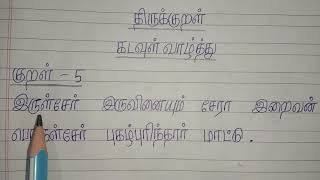 திருக்குறள்
கடவுள் வாழ்த்து
குறள் - 5
இருள்சேர் இருவினையும் சேரா இறைவன்
புகழ்புரிந்தார் மாட்டு.